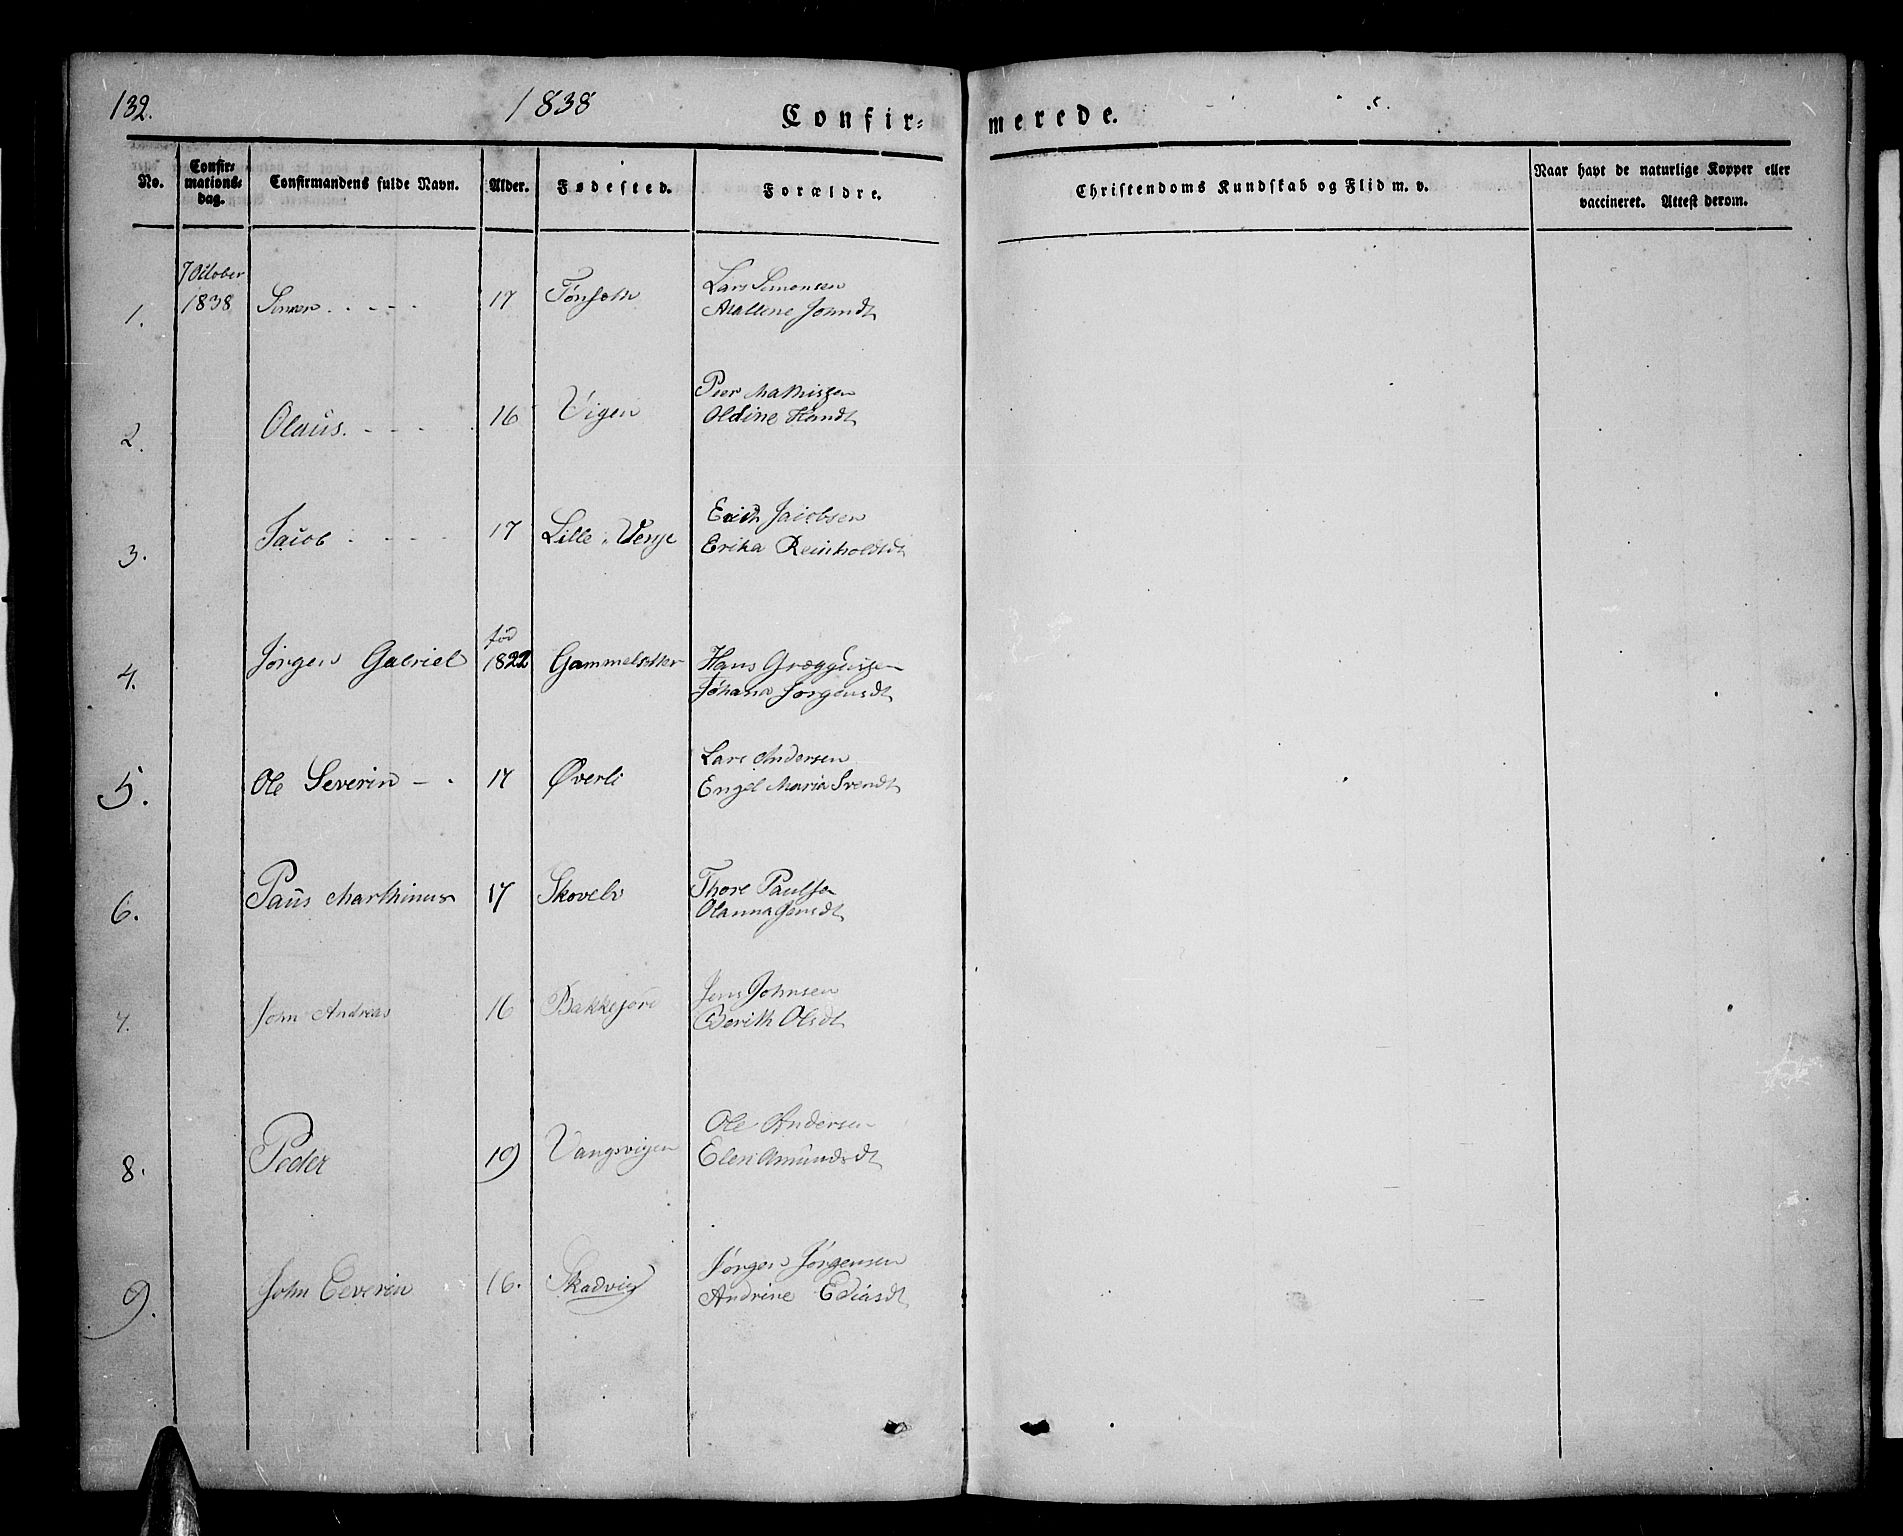 132.
1838
Confir=
merede.
No.
Confir=
mations=
dag.
Confirmandens fulde Navn.
Alder.
Fødested.
Forældre.
Christendoms Kundskab og Flid m. v.
Naar havt de naturlige Kopper eller
vaccineret. Attest derom.
7 October
1. 1838 Simon . . - - - 17 Lars Simonsen
Malene
2. Olaus. - - - 16 Vigen Peer Mathiszen
Oldine Handt
3. Jacob . - - - 17 Lille Erich Jacobsen
Erika Reinholdtdt
4. Jørgen Gabriel fød
1822 Gammelsetter Hans
Johana Jørgensdt
5. Ole Severin - . 17 Øverli Lars Andersen
Engel Maria Svendt
6. Paus Marthinus 17 Skovelv Thore Paulse
Olanna Jensdt
7. John Andreas 16 Bakkejord Jens Johnsen
Berith Olsdt
8. Peder 19 Vangsvigen Ole Andersen
Elen Amundsdt
9. John Ceverin 16. Skadvig Jørgen Jørgensen
Andrine Ediasdt